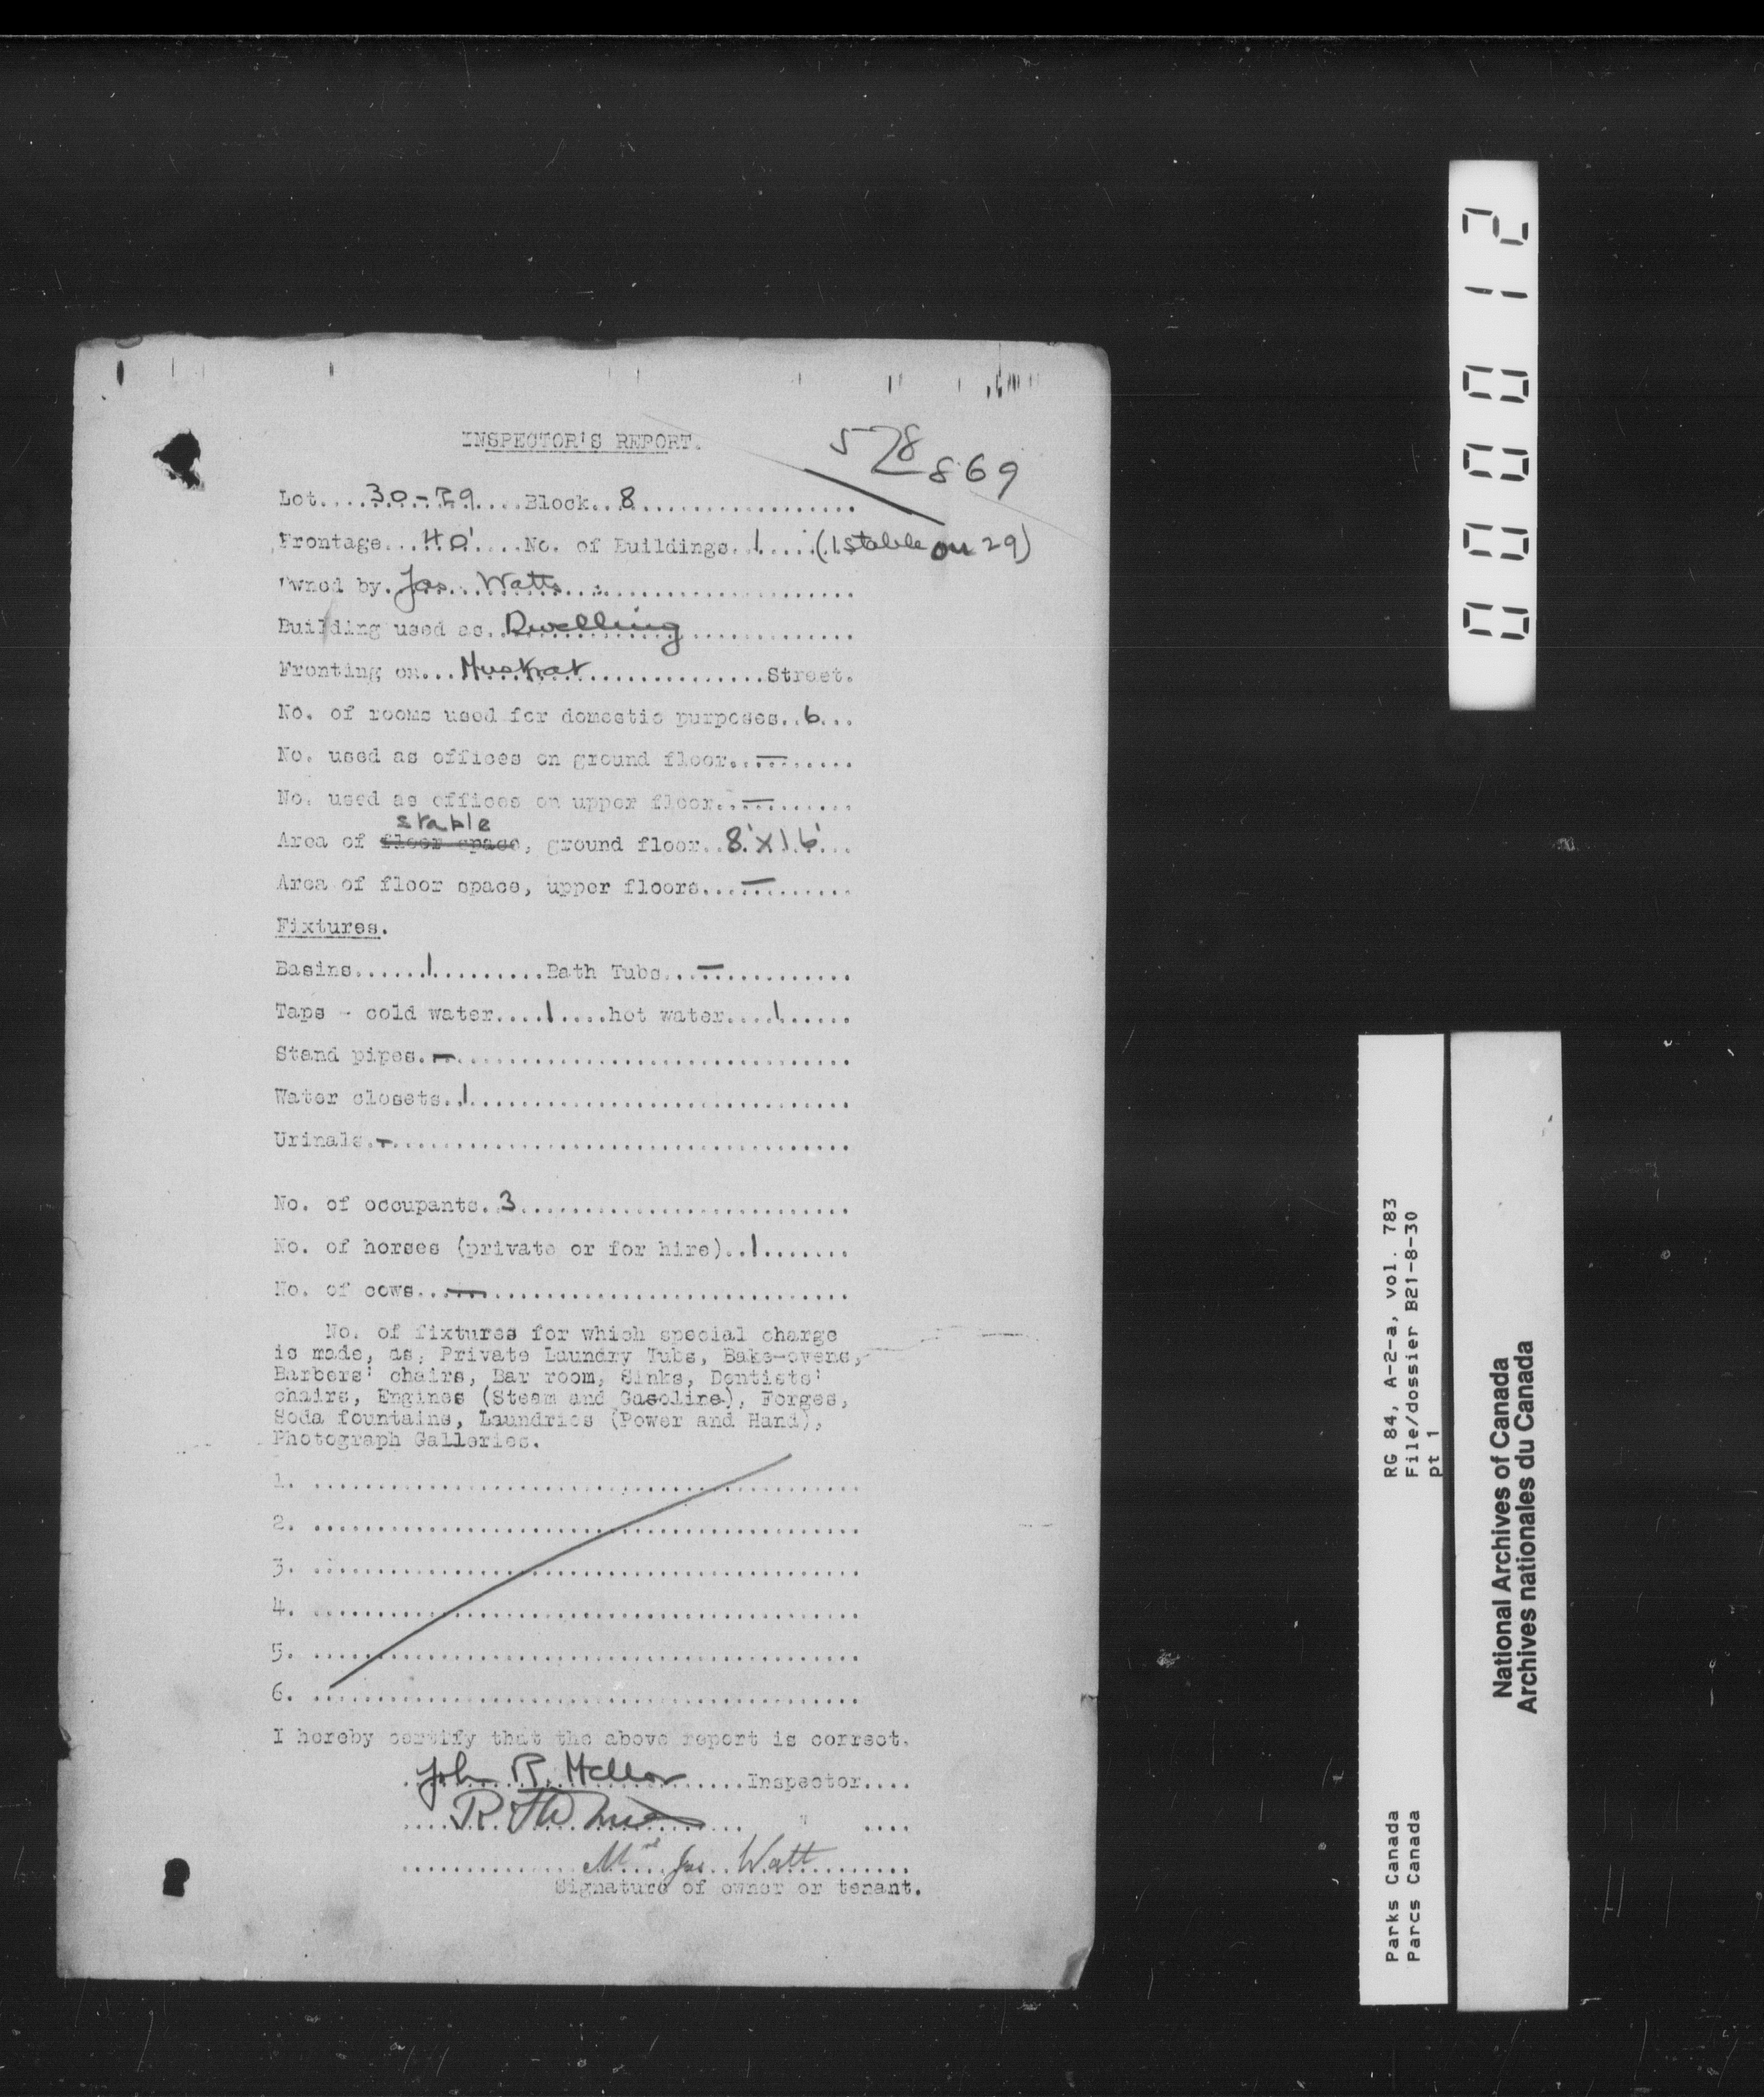 INSPECTOR'S REPORT.
578
869
Lot....30-29....Block..8...................
Frontage...40'....No. of Buildings..1....(1 stable on 29)
Owned by.Jas. Watts...........................
Building used as..Dwelling..................
Fronting on...Muskrat....................Street.
No. of rooms used for domestic purposes..6...
No. used as offices on ground floor..—......
No. used as offices on upper floor..—.........
stable
Area of floor space, ground floor..8'x16'...
Area of floor space, upper floors...—.........
Fixtures.
Basins......1.........Bath Tubs...—............
Taps - cold water....1....hot water....1......
Stand pipes.—...............................
Water closets..1..............................
Urinals.—...................................
No. of occupants.3..........................
No. of horses (private or for hire)..1.......
No. of cows...—............................
No. of fixtures for which special charge
is made, as, Private Laundry Tubs, Bake-ovens,
Barbers' chairs, Bar room, Sinks, Dentists'
chairs, Engines (Steam and Gasoline), Forges,
Soda fountains, Laundries (Power and Hand),
Photograph Galleries.
1. ..........................................
2. ..........................................
3. ..........................................
4. ..........................................
5. ..........................................
6. ..........................................
I hereby certify that the above report is correct.
John R. Mellor.....Inspector....
" ....
Mrs Jas. Watt
Signature of owner or tenant.
000012
RG 84, A-2-a, vol. 783
File/dossier B21-8-30
pt 1
Parks Canada
Parcs Canada
National Archives of Canada
Archives nationales du Canada